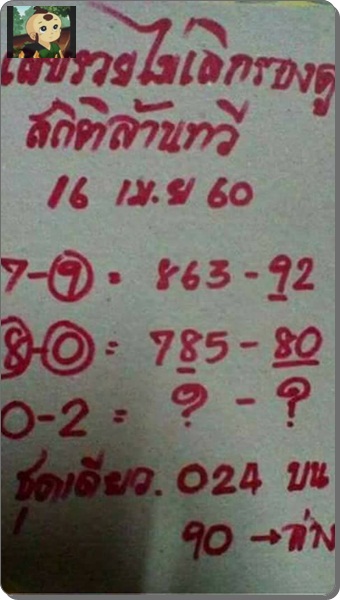 เลขรวยไม่เลิกรองดู
สถิติล้านทวี
16 เม.ย 60
7-9 = 863 - 92
8-0 = 785 - 80
0-2 = ? - ?
ชุดเดียว. 024 บน
90 → ล่าง